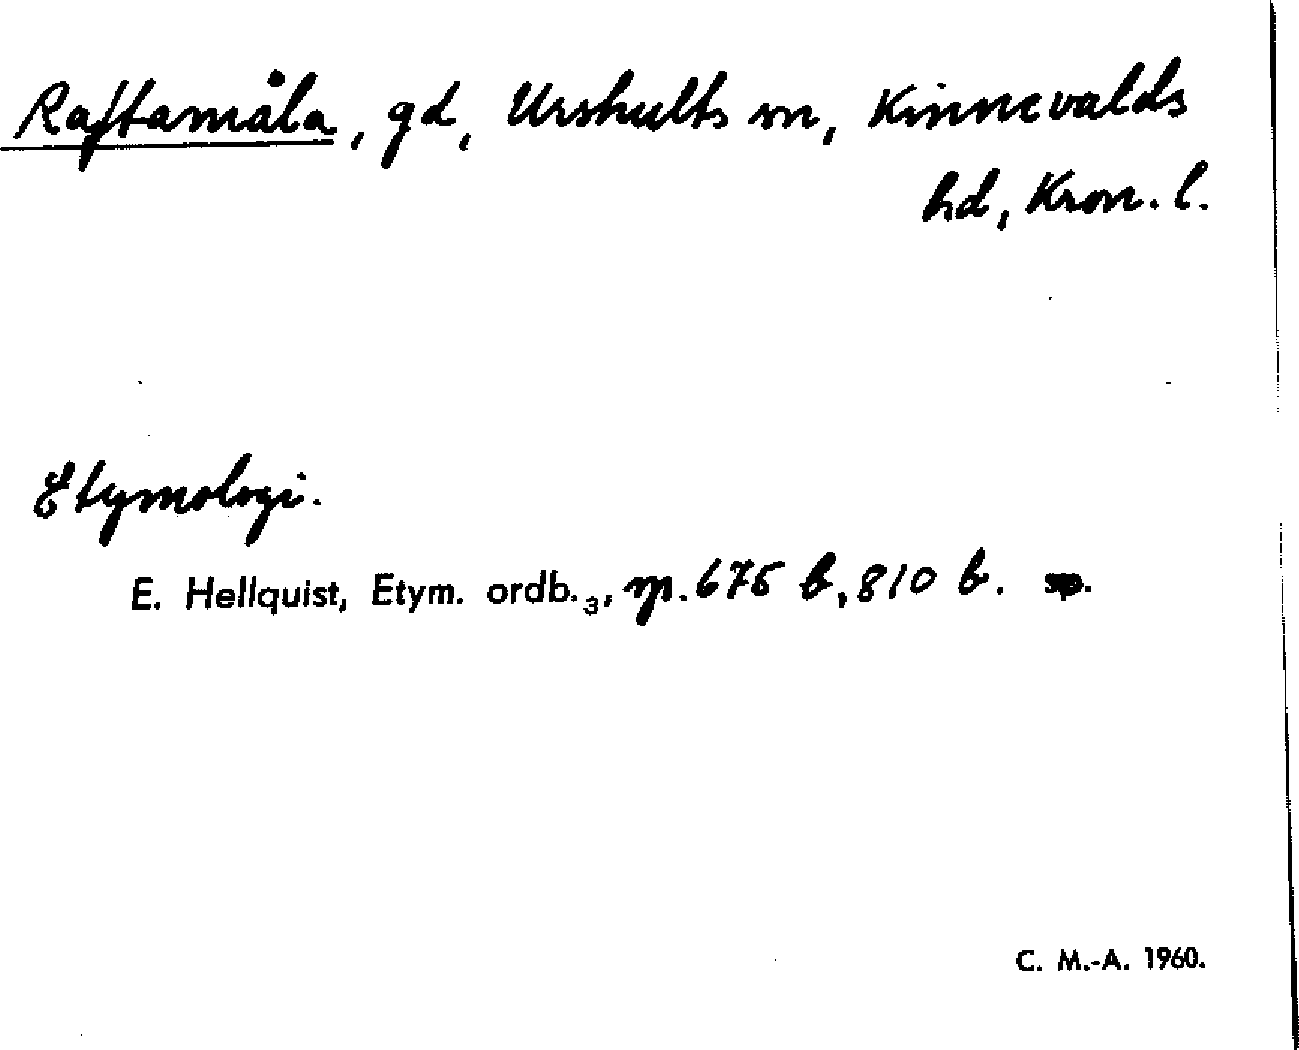 Raftamåla, gd, Urshults sn, Kinnevalds
hd, Kron. l.
Etymologi.
E. Hellquist, Etym. ordb.₃, sp. 675 b, 810 b. sp.
C. M.-A. 1960.